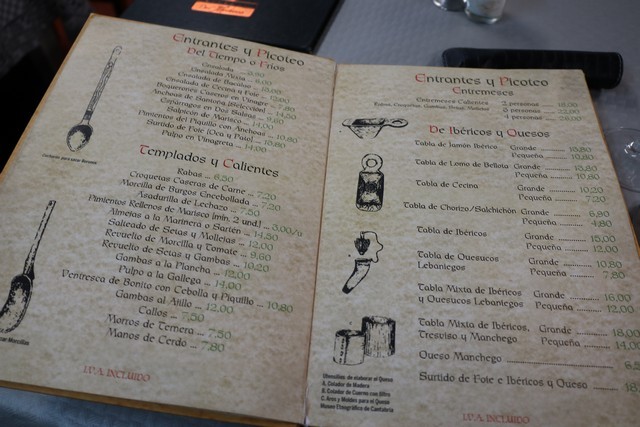 Entrantes y Picoteo
Del Tiempo o Fríos
Ensalada
Ensalada Mixta
Ensalada de Cecina y Foie
Boquerones Caseros en Vinagre
Anchoas de Santoña (Selección)
Espárragos en Dos Salsas
Salpicón de Marisco
Pimientos del Piquillo con Anchoas
Surtido de Foie (Oca y Pato)
Pulpo en Vinagreta ... 14,00
Templados y Calientes
Rabas ... 6,50
Croquetas Caseras de Carne ... 7,20
Morcilla de Burgos Encebollada ... 7,20
Asadurilla de Lechazo ... 7,50
Pimientos Rellenos de Marisco (mín. 2 und.) ... 3,00/u
Almejas a la Marinera o Sartén ... 14,50
Salteado de Setas y Mollejas ... 12,00
Revuelto de Morcilla y Tomate ... 9,60
Revuelto de Setas y Gambas ... 10,20
Gambas a la Plancha ... 12,00
Pulpo a la Gallega ... 14,00
Ventresca de Bonito con Cebolla y Piquillo ... 10,80
Gambas al Ajillo ... 12,00
Callos ... 7,50
Morros de Ternera ... 7,50
Manos de Cerdo ... 7,80
I.V.A. INCLUIDO
Entrantes y Picoteo
Entremeses
Entremeses Calientes 2 personas
3 personas
4 personas
De Ibéricos y Quesos
Tabla de Jamón Ibérico Grande 15,80
Pequeña 10,80
Tabla de Lomo de Bellota Grande
Pequeña 10,80
Tabla de Cecina Grande 10,20
Pequeña 7,20
Tabla de Chorizo/Salchichón Grande 6,90
Pequeña 4,80
Tabla de Ibéricos Grande 15,00
Pequeña 12,00
Tabla de Quesucos Grande 10,80
Lebaniegos Pequeña 7,80
Tabla Mixta de Ibéricos Grande 16,00
y Quesucos Lebaniegos Pequeña 12,00
Tabla Mixta de Ibéricos, Grande 18,00
Tresviso y Manchego Pequeña 14,00
Queso Manchego
Surtido de Foie e Ibéricos y Queso
Utensilios de elaborar el Queso
A. Colador de Madera
B. Colador de Cuerno con filtro
C. Aros y Moldes para el Queso
Museo Etnográfico de Cantabria
I.V.A. INCLUIDO